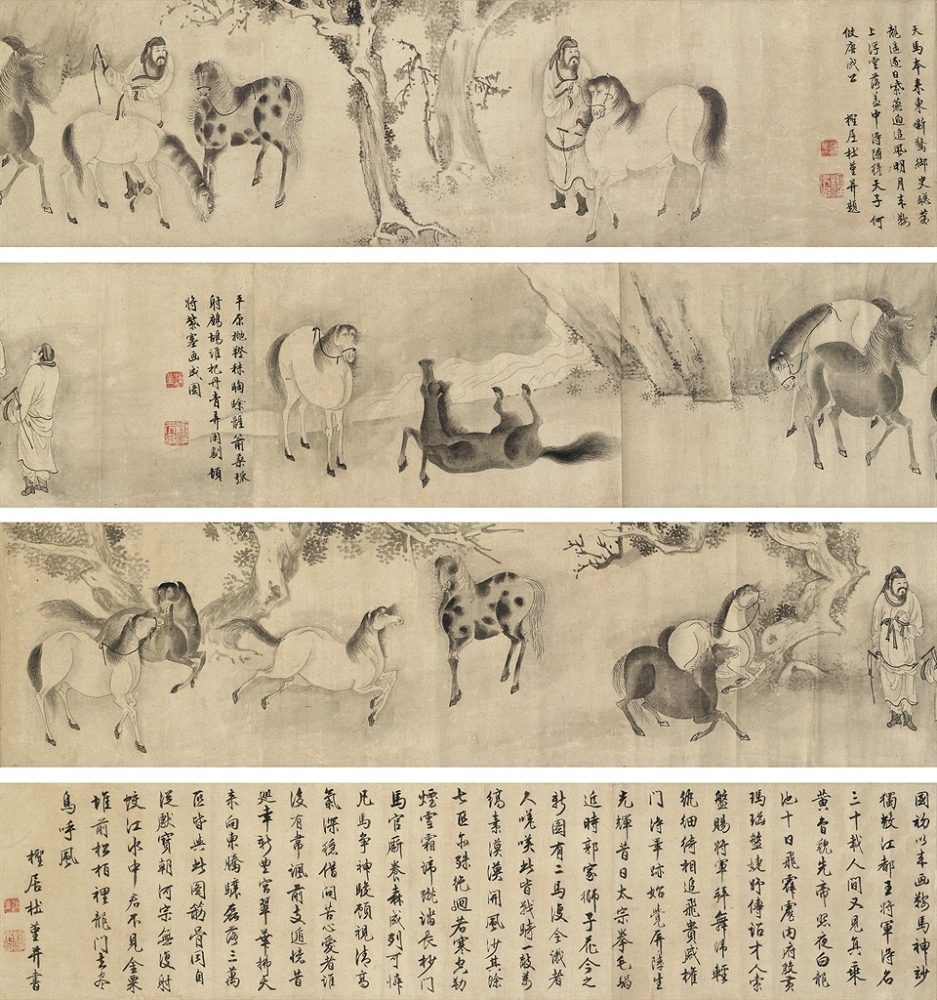 天馬本來東嘶驚御史驄蒼
龍遙逐日紫燕迥追風明月來鞍
上浮雲落盖中得隨穆天子何
假唐成公
檉居杜堇并題
平原拋鞚秣駒 箭桑弧
射鷓鴣誰把丹青弄閒劇頓
將紫塞画成圖
國初以來画鞍馬神妙
獨數江都王將軍得名
三十載人間又見真乘
黃曾貌先帝照夜白龍
池十日飛霹靂内府殷
瑪瑙盤婕妤傳詔才人索
盤賜將軍拜舞歸輕
紈細綺相追飛貴戚權
門得筆跡始覺屏障生
光輝昔日太宗拳毛騧
近時郭家獅子花今之
新圖有二馬復令識者
久嘆嗟此皆戰時一敵萬
縞素漠漠開風沙其餘
七匹亦殊絕迥若寒空動
煙雪霜蹄蹴踏長楸間
馬官廝養森成列可憐
九馬爭神駿顧視清高
氣深穩借問苦心愛者誰
後有韋諷前支遁憶昔
巡幸新豐宮翠華拂天
來向東騰驤磊落三萬
匹皆與此圖筋骨同自
從獻寶朝河宗無復射
蛟江水中君不見金粟
堆前松柏裡龍門去盡
鳥呼風
檉居杜堇并書